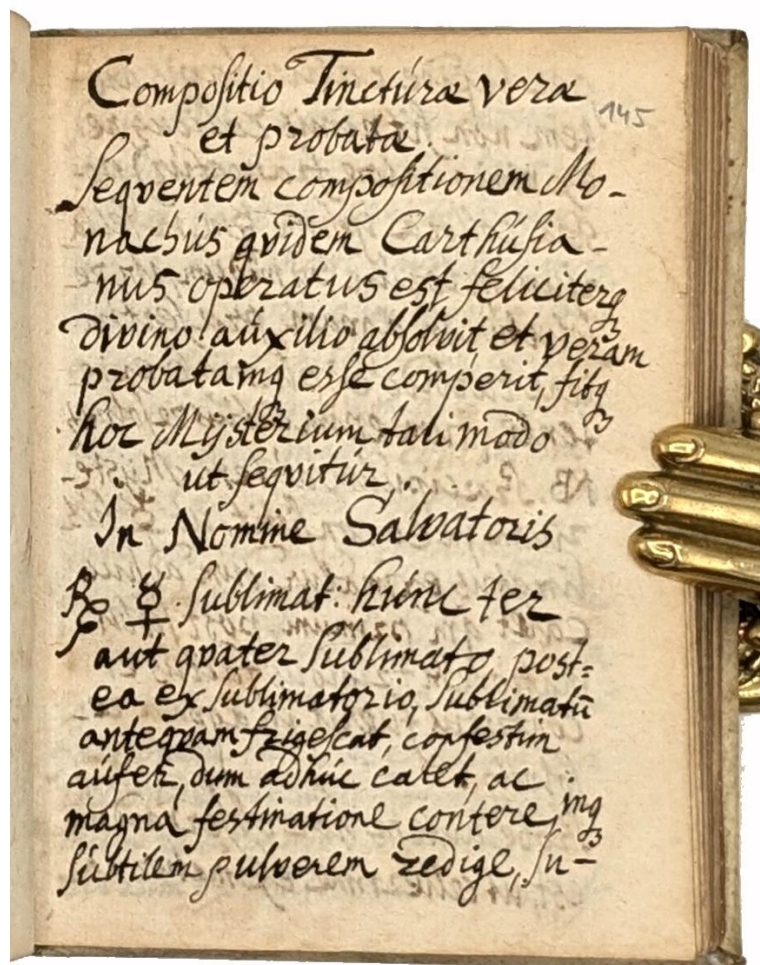 Compositio Tincturæ veræ
145
et probatæ.
Seqventem compositionem Mo-
nachús qvidem Carthúsia-
nus operatus est feliciterq3
divino aúxilio absolvit, et veram
probatamq3 esse comperit, fitq3
hoc Mÿsterium tali modo
ut seqvitúr.
In Nomine Salvatoris
℞ ☿ Sublimat: húnc ter
aut qvater Sublimato post=
ea ex Sublimatorio, Sublimatū
anteqvam frigescat, confestim
aúfer, dum adhúc calet, ac
magna festinatione contere, inq3
súbtilem pulverem redige, su-